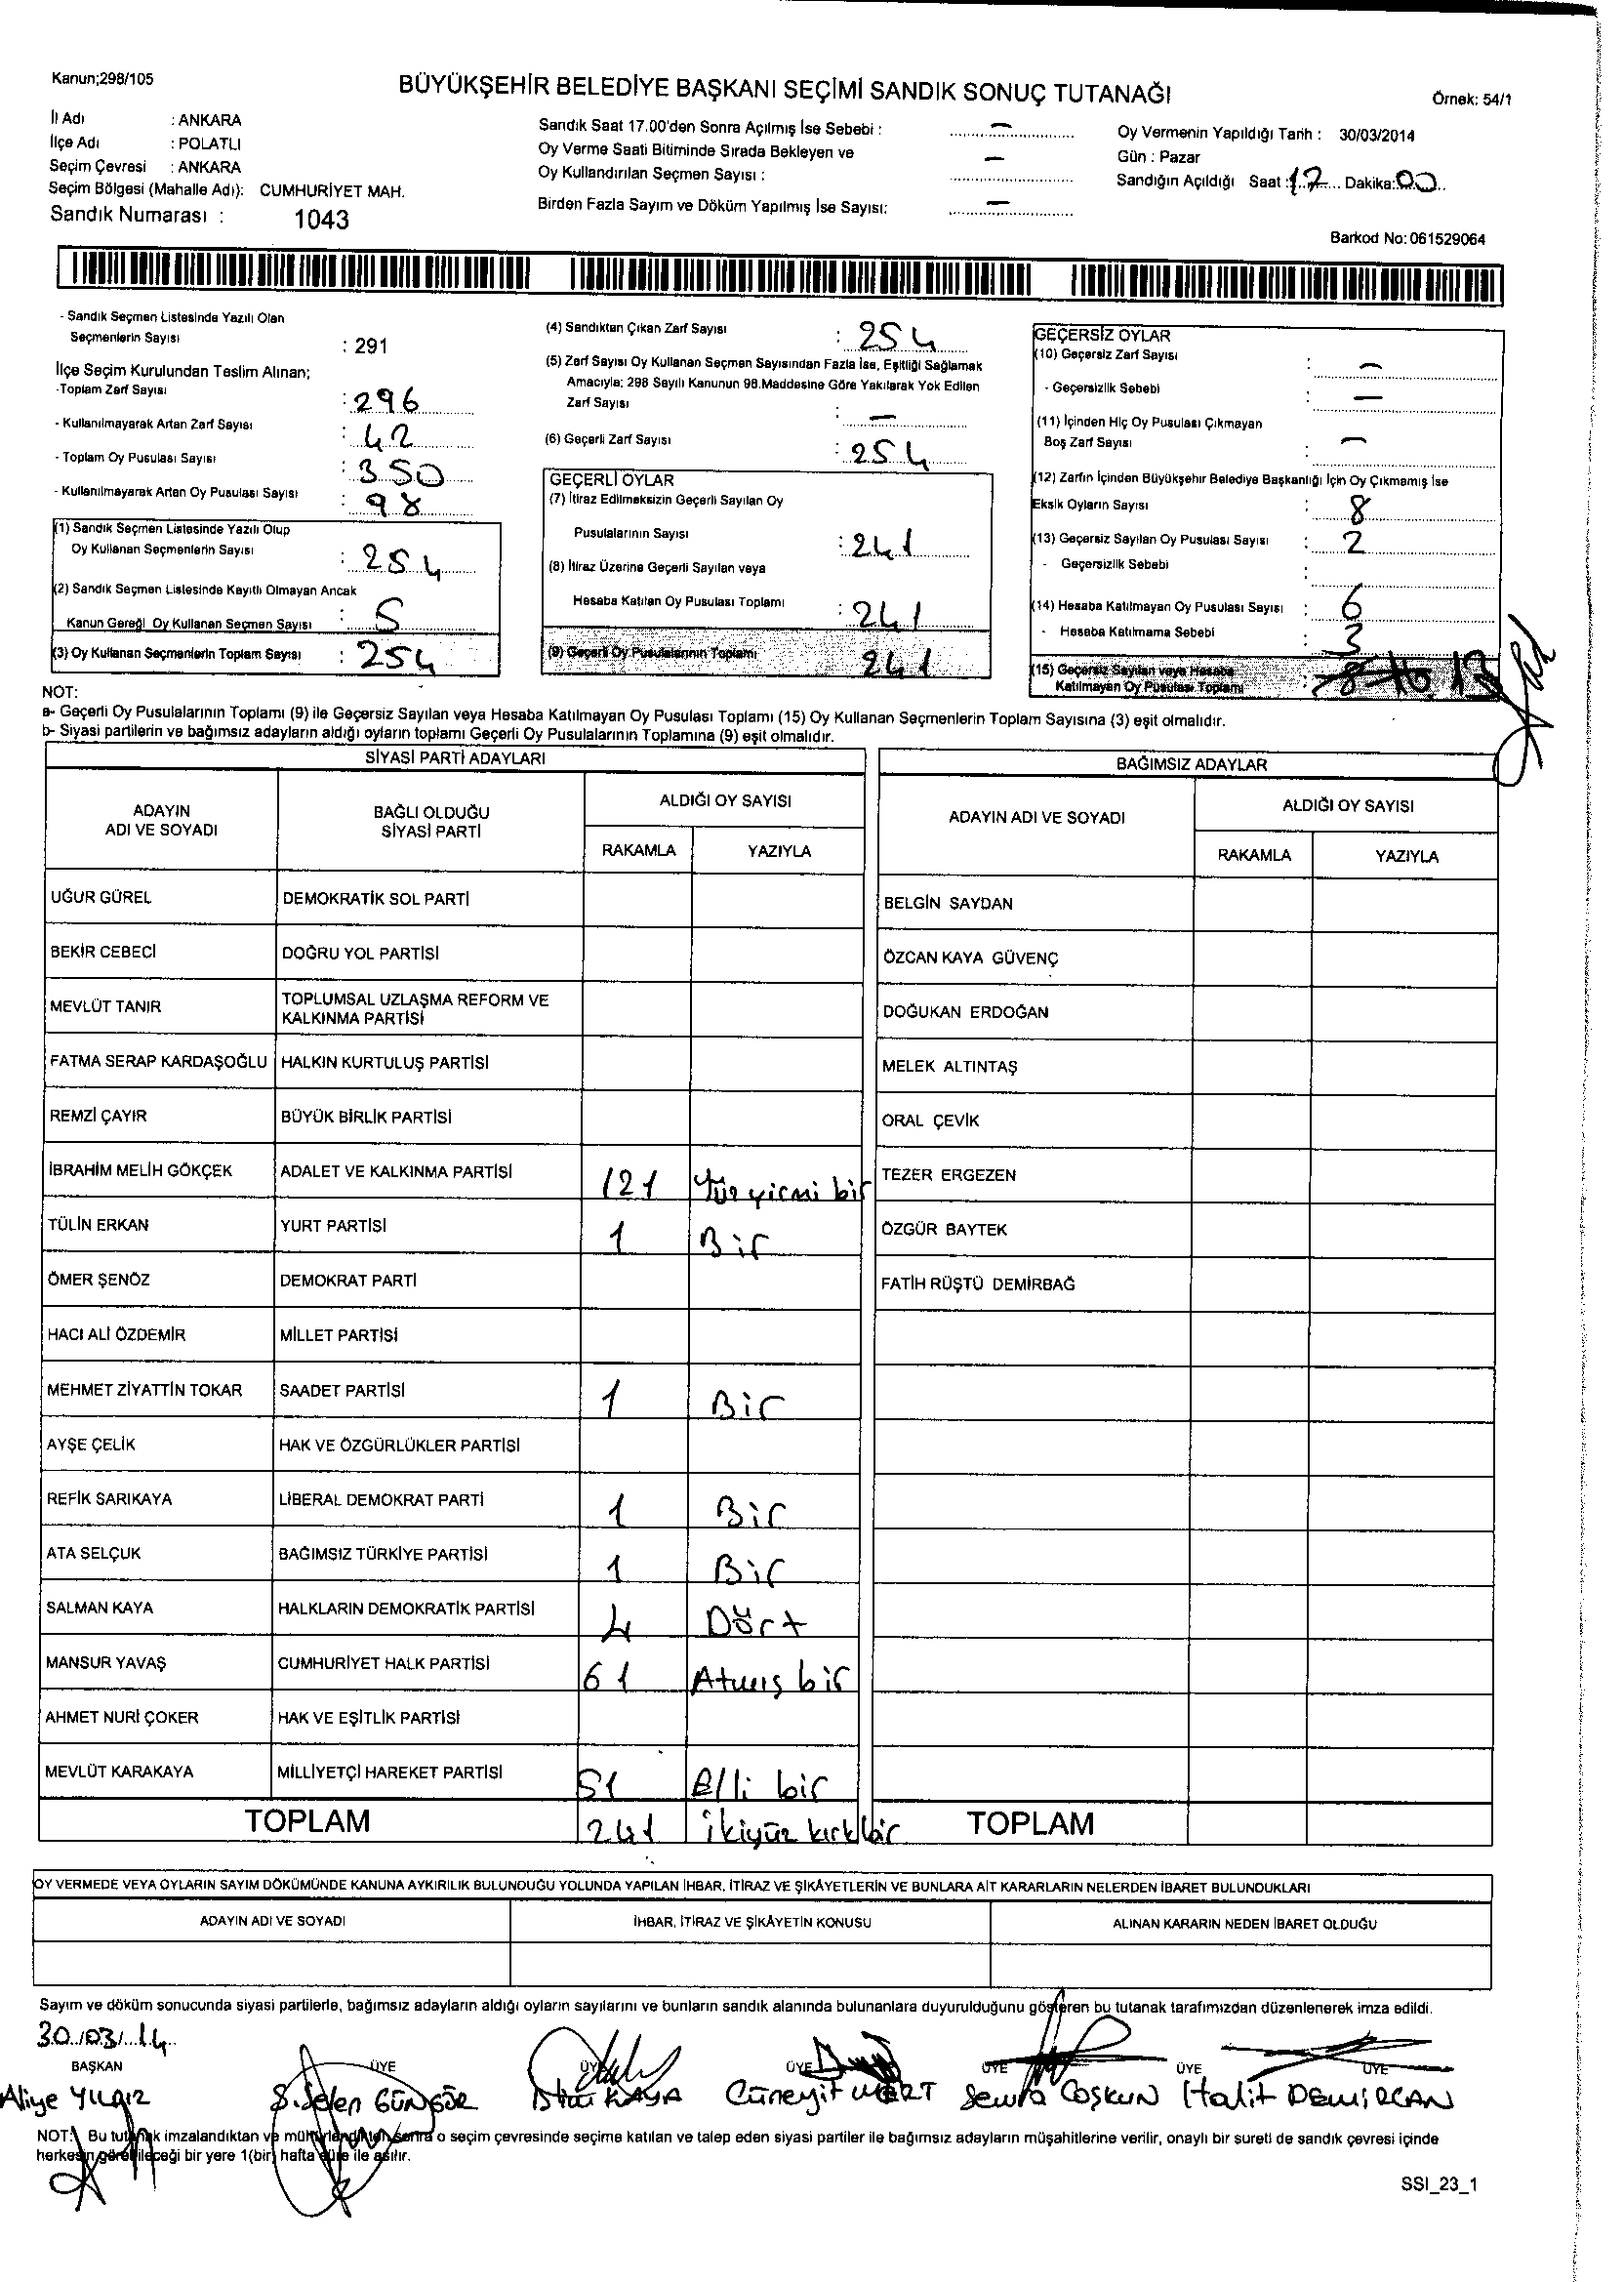 Kanun;298/105
BÜYÜKŞEHİR BELEDİYE BAŞKANI SEÇİMİ SANDIK SONUÇ TUTANAĞI
Örnek: 54/1
İl Adı : ANKARA
İlçe Adı : POLATLI
Seçim Çevresi : ANKARA
Seçim Bölgesi (Mahalle Adı): CUMHURİYET MAH.
Sandık Numarası : 1043
Sandık Saat 17.00'den Sonra Açılmış İse Sebebi : –
Oy Verme Saati Bitiminde Sırada Bekleyen ve
Oy Kullandırılan Seçmen Sayısı : –
Birden Fazla Sayım ve Döküm Yapılmış İse Sayısı: –
Oy Vermenin Yapıldığı Tarih : 30/03/2014
Gün : Pazar
Sandığın Açıldığı Saat :17 Dakika:00
Barkod No:061529064
- Sandık Seçmen Listesinde Yazılı Olan
Seçmenlerin Sayısı : 291
İlçe Seçim Kurulundan Teslim Alınan;
-Toplam Zarf Sayısı : 296
- Kullanılmayarak Artan Zarf Sayısı : 42
- Toplam Oy Pusulası Sayısı : 350
- Kullanılmayarak Artan Oy Pusulası Sayısı : 98
(1) Sandık Seçmen Listesinde Yazılı Olup
Oy Kullanan Seçmenlerin Sayısı : 254
(2) Sandık Seçmen Listesinde Kayıtlı Olmayan Ancak
Kanun Gereği Oy Kullanan Seçmen Sayısı : 5
(3) Oy Kullanan Seçmenlerin Toplam Sayısı : 254
(4) Sandıktan Çıkan Zarf Sayısı : 254
(5) Zarf Sayısı Oy Kullanan Seçmen Sayısından Fazla İse, Eşitliği Sağlamak
Amacıyla; 298 Sayılı Kanunun 98.Maddesine Göre Yakılarak Yok Edilen
Zarf Sayısı : –
(6) Geçerli Zarf Sayısı : 254
GEÇERLİ OYLAR
(7) İtiraz Edilmeksizin Geçerli Sayılan Oy
Pusulalarının Sayısı : 241
(8) İtiraz Üzerine Geçerli Sayılan veya
Hesaba Katılan Oy Pusulası Toplamı : 241
(9) Geçerli Oy Pusulalarının Toplamı 241
GEÇERSİZ OYLAR
(10) Geçersiz Zarf Sayısı : –
- Geçersizlik Sebebi : –
(11) İçinden Hiç Oy Pusulası Çıkmayan
Boş Zarf Sayısı : –
(12) Zarfın İçinden Büyükşehir Belediye Başkanlığı İçin Oy Çıkmamış İse
Eksik Oyların Sayısı : 8
(13) Geçersiz Sayılan Oy Pusulası Sayısı : 2
- Geçersizlik Sebebi :
(14) Hesaba Katılmayan Oy Pusulası Sayısı : 6
- Hesaba Katılmama Sebebi : 3
(15) Geçersiz Sayılan veya Hesaba
Katılmayan Oy Pusulası Toplamı : 13
NOT:
a- Geçerli Oy Pusulalarının Toplamı (9) ile Geçersiz Sayılan veya Hesaba Katılmayan Oy Pusulası Toplamı (15) Oy Kullanan Seçmenlerin Toplam Sayısına (3) eşit olmalıdır.
b- Siyasi partilerin ve bağımsız adayların aldığı oyların toplamı Geçerli Oy Pusulalarının Toplamına (9) eşit olmalıdır.
SİYASİ PARTİ ADAYLARI
ADAYIN ADI VE SOYADI BAĞLI OLDUĞU SİYASİ PARTİ ALDIĞI OY SAYISI
RAKAMLA YAZIYLA
UĞUR GÜREL DEMOKRATİK SOL PARTİ
BEKİR CEBECİ DOĞRU YOL PARTİSİ
MEVLÜT TANIR TOPLUMSAL UZLAŞMA REFORM VE KALKINMA PARTİSİ
FATMA SERAP KARDAŞOĞLU HALKIN KURTULUŞ PARTİSİ
REMZİ ÇAYIR BÜYÜK BİRLİK PARTİSİ
İBRAHİM MELİH GÖKÇEK ADALET VE KALKINMA PARTİSİ 121 Yüz yirmi bir
TÜLİN ERKAN YURT PARTİSİ 1 Bir
ÖMER ŞENÖZ DEMOKRAT PARTİ
HACI ALİ ÖZDEMİR MİLLET PARTİSİ
MEHMET ZİYATTİN TOKAR SAADET PARTİSİ 1 Bir
AYŞE ÇELİK HAK VE ÖZGÜRLÜKLER PARTİSİ
REFİK SARIKAYA LİBERAL DEMOKRAT PARTİ 1 Bir
ATA SELÇUK BAĞIMSIZ TÜRKİYE PARTİSİ 1 Bir
SALMAN KAYA HALKLARIN DEMOKRATİK PARTİSİ 4 Dört
MANSUR YAVAŞ CUMHURİYET HALK PARTİSİ 61 Atmış bir
AHMET NURİ ÇOKER HAK VE EŞİTLİK PARTİSİ
MEVLÜT KARAKAYA MİLLİYETÇİ HAREKET PARTİSİ 51 Elli bir
TOPLAM 241 İkiyüz kırk bir
BAĞIMSIZ ADAYLAR
ADAYIN ADI VE SOYADI ALDIĞI OY SAYISI
RAKAMLA YAZIYLA
BELGİN SAYDAN
ÖZCAN KAYA GÜVENÇ
DOĞUKAN ERDOĞAN
MELEK ALTINTAŞ
ORAL ÇEVİK
TEZER ERGEZEN
ÖZGÜR BAYTEK
FATİH RÜŞTÜ DEMİRBAĞ
TOPLAM
OY VERMEDE VEYA OYLARIN SAYIM DÖKÜMÜNDE KANUNA AYKIRILIK BULUNDUĞU YOLUNDA YAPILAN İHBAR, İTİRAZ VE ŞİKÂYETLERİN VE BUNLARA AİT KARARLARIN NELERDEN İBARET BULUNDUKLARI
ADAYIN ADI VE SOYADI İHBAR, İTİRAZ VE ŞİKÂYETİN KONUSU ALINAN KARARIN NEDEN İBARET OLDUĞU
Sayım ve döküm sonucunda siyasi partilerle, bağımsız adayların aldığı oyların sayılarını ve bunların sandık alanında bulunanlara duyurulduğunu gösteren bu tutanak tarafımızdan düzenlenerek imza edildi.
30/03/14
BAŞKAN ÜYE ÜYE ÜYE ÜYE ÜYE ÜYE
Aliye YILGIZ S.Selen GÜNGÖR KAYA Cüneyit MERT Semra COŞKUN Halit DEMİRCAN
NOT: Bu tutanak imzalandıktan ve mühürlendikten sonra o seçim çevresinde seçime katılan ve talep eden siyasi partiler ile bağımsız adayların müşahitlerine verilir, onaylı bir sureti de sandık çevresi içinde
herkesin görebileceği bir yere 1(bir) hafta süre ile asılır.
SSI_23_1